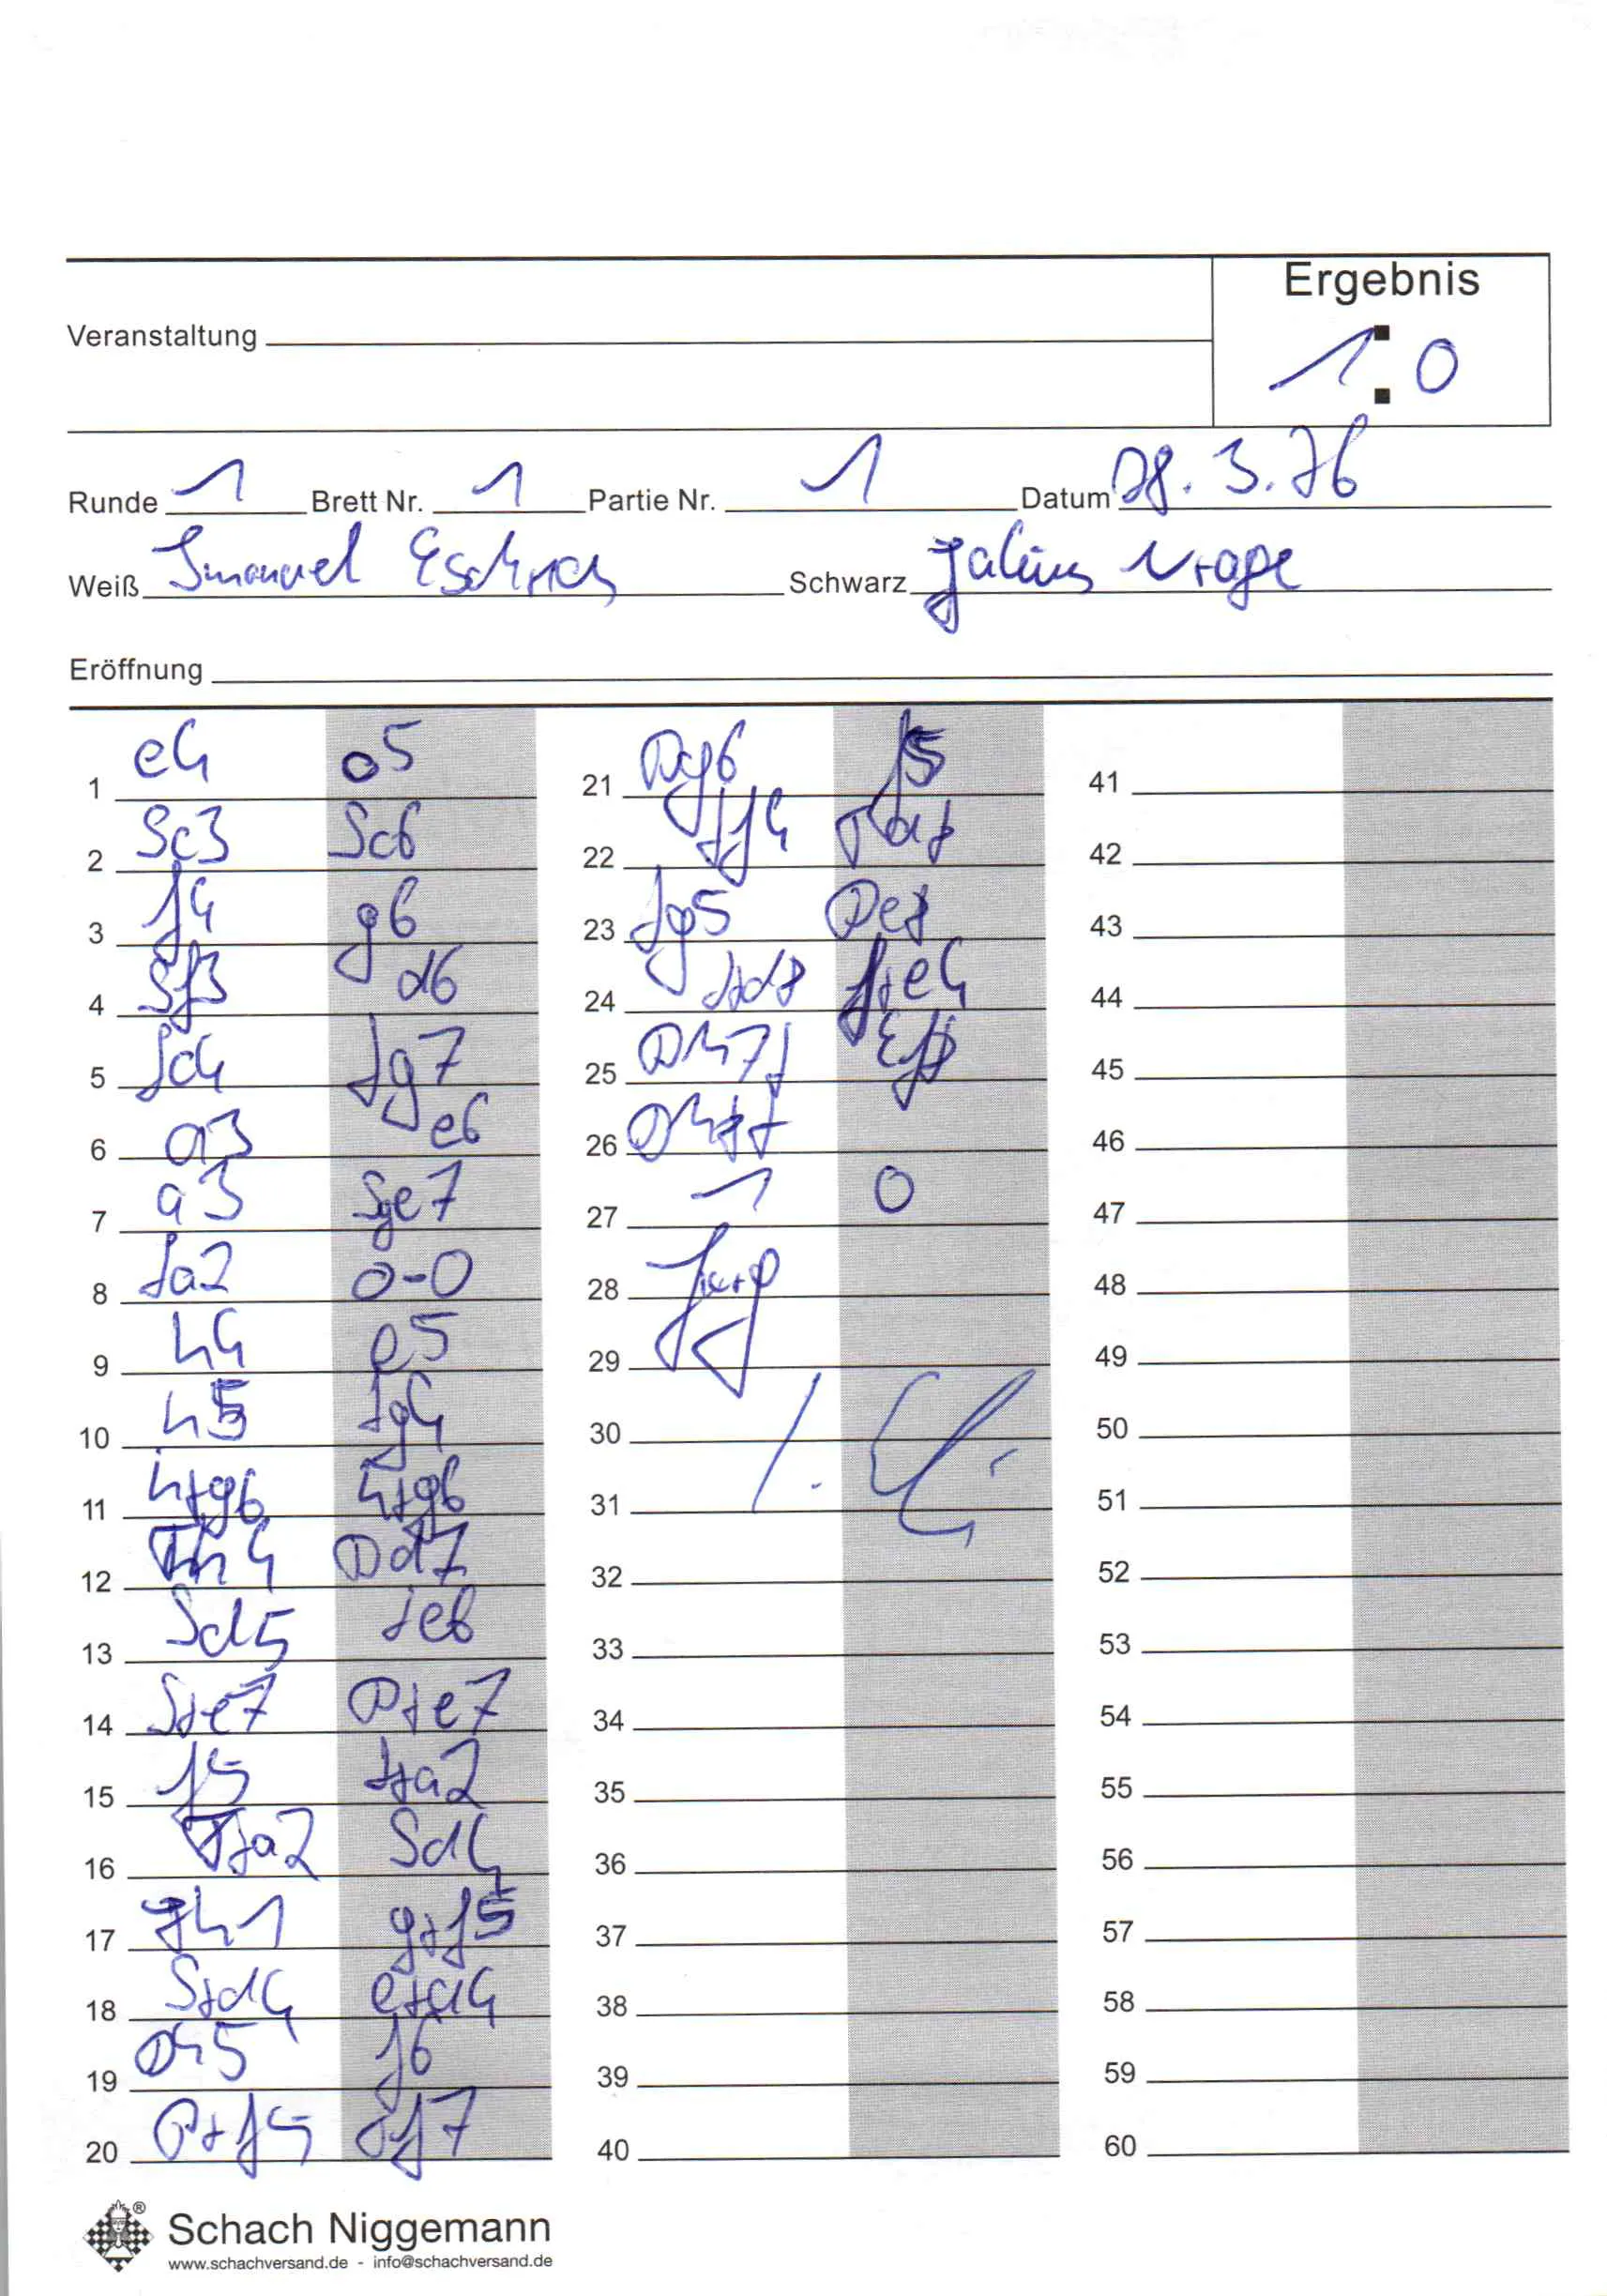 Ergebnis
Veranstaltung
1 : 0
Runde 1 Brett Nr. 1 Partie Nr. 1 Datum 28.3.76
Weiß Schwarz
Eröffnung
1 e4 c5
2 Sc3 Sc6
3 f4 g6
4 Sf3 d6
5 Lc4 Lg7
6 e6
7 a3 Sge7
8 La2 0-0
9 h4 e5
10 h5 Lg4
11 hxg6 hxg6
12 Th4 Dd7
13 Sd5 Le6
14 Sxe7 Dxe7
15 f5 Lxa2
16 Txa2 Sd4
17 gxf5
18 Sxd4 exd4
19 Dh5 f6
20 Df7
21 Dg6 f5
22 Lf4
23 Lg5 De8
24 fxe4
25 Dh7+
26
27 1 0
28
29
30
31
32
33
34
35
36
37
38
39
40
41
42
43
44
45
46
47
48
49
50
51
52
53
54
55
56
57
58
59
60
Schach Niggemann
www.schachversand.de - info@schachversand.de